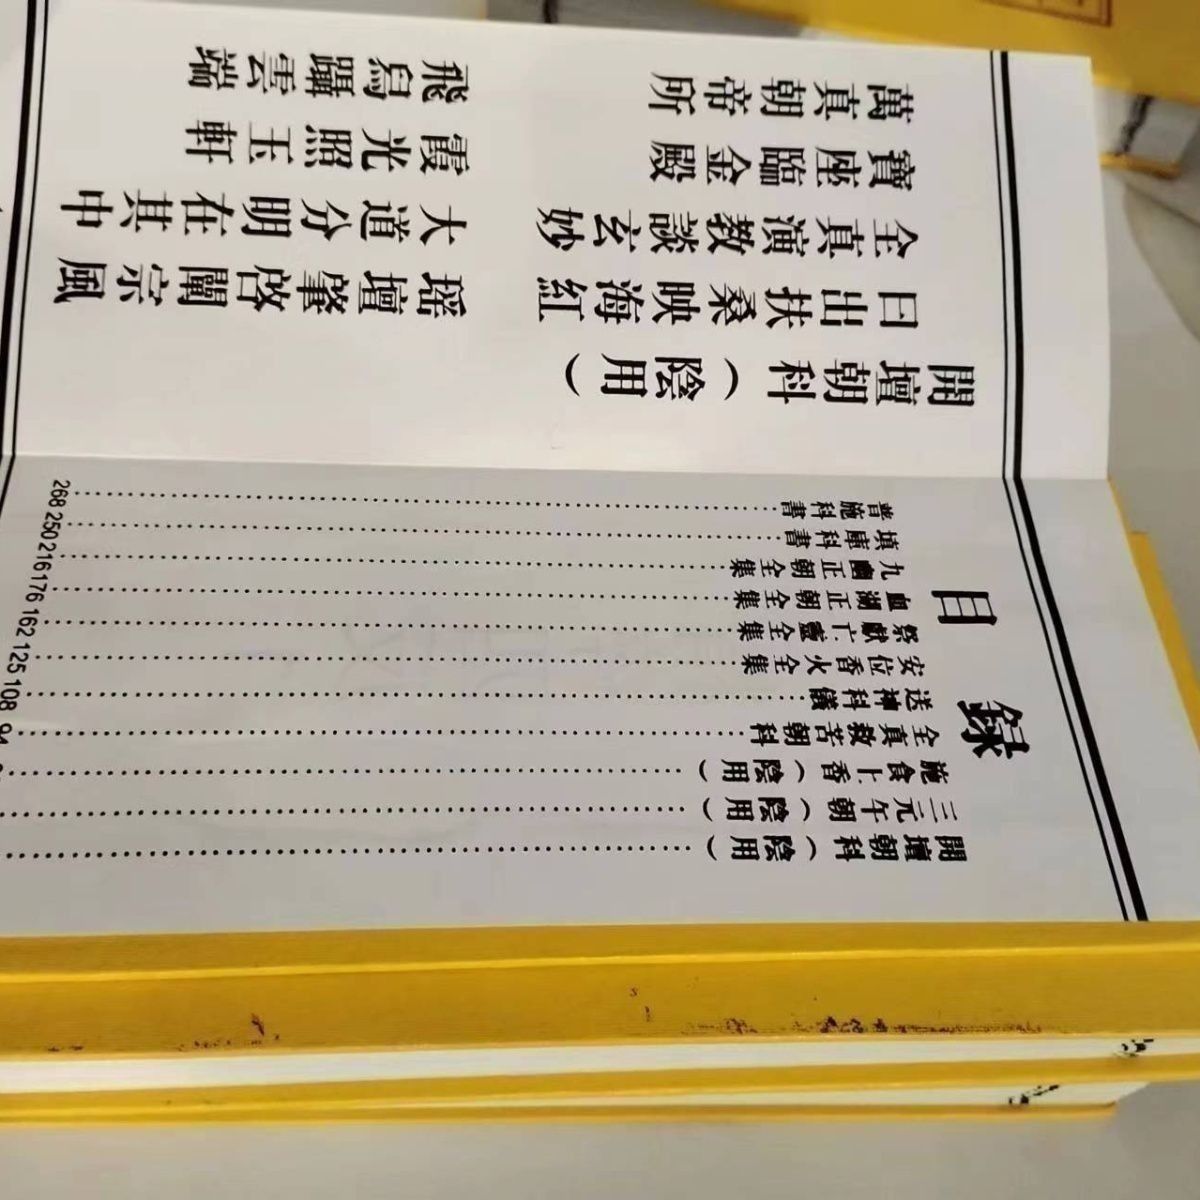 目録
開壇朝科（陰用）
三元午朝（陰用）
施食上香（陰用）
全真救苦朝科
送神科儀 108
安位香火全集 125
祭獻亡靈全集 162
血湖正朝全集 176
九幽正朝全集 216
填庫科書 250
普施科書 268
開壇朝科（陰用）
日出扶桑映海紅 瑶壇肇啓闡宗風
全真演教談玄妙 大道分明在其中
寶座臨金殿 霞光照玉軒
萬真朝帝所 飛舄躡雲端